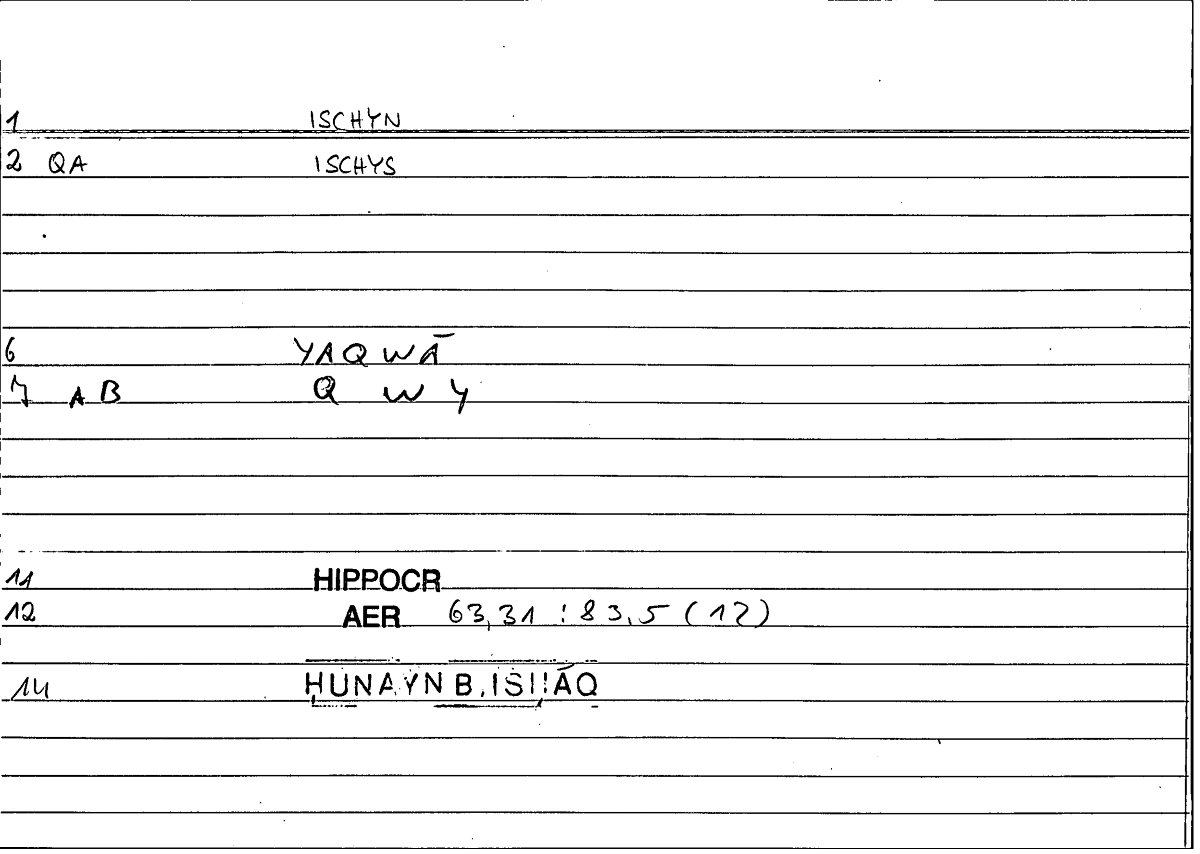 1 ISCHYN
2 QA ISCHYS
6 YAQWĀ
7 AB Q W Y
11 HIPPOCR
12 AER 63,31 : 83,5 (12)
14 ḤUNAYN B. ISḤĀQ